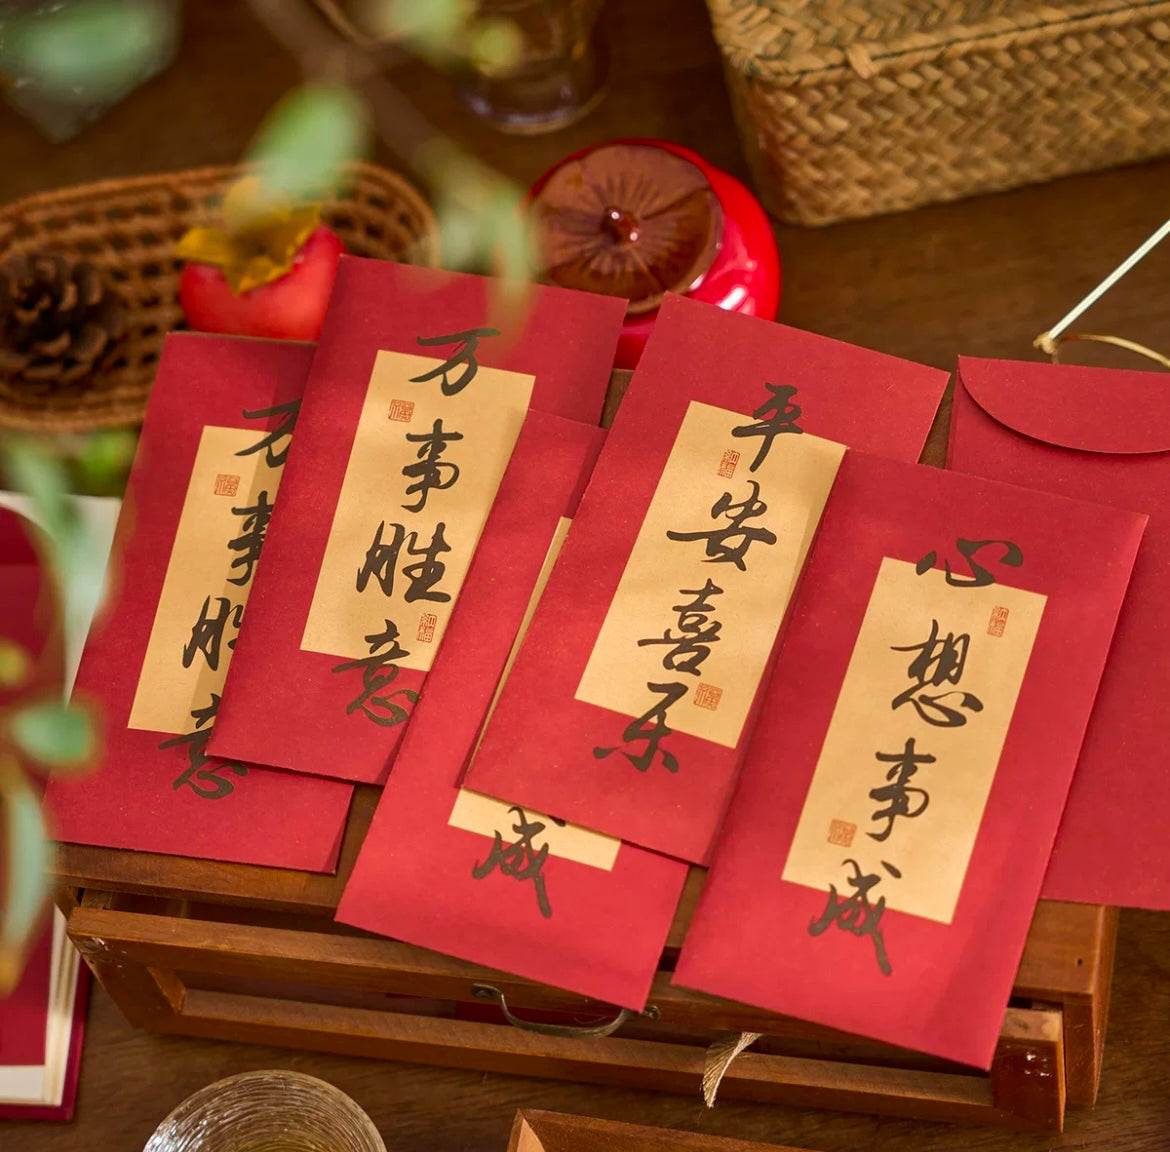 万事胜意
万事胜意
成
平安喜乐
心想事成